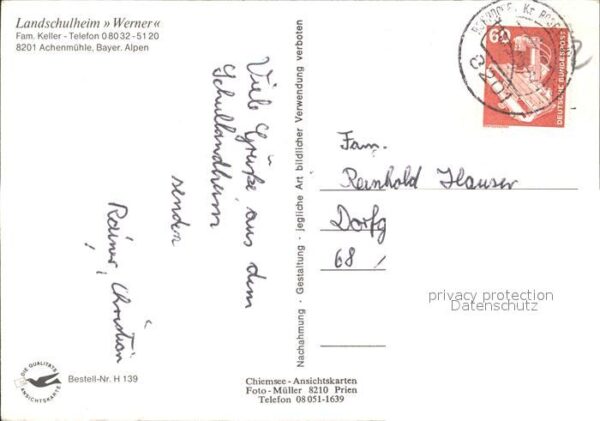 Landschulheim » Werner «
Fam. Keller - Telefon 0 80 32 - 51 20
8201 Achenmühle, Bayer. Alpen
Viele Grüße aus dem
Schullandheim
senden
Rainer, Christian
Bestell-Nr. H 139
DIE QUALITÄTS
ANSICHTSKARTE
Nachahmung · Gestaltung · jegliche Art bildlicher Verwendung verboten
Chiemsee - Ansichtskarten
Foto - Müller 8210 Prien
Telefon 08 051-1639
60
DEUTSCHE BUNDESPOST
8201
Fam.
Reinhold Hauser
Dorfg
68
privacy protection
Datenschutz